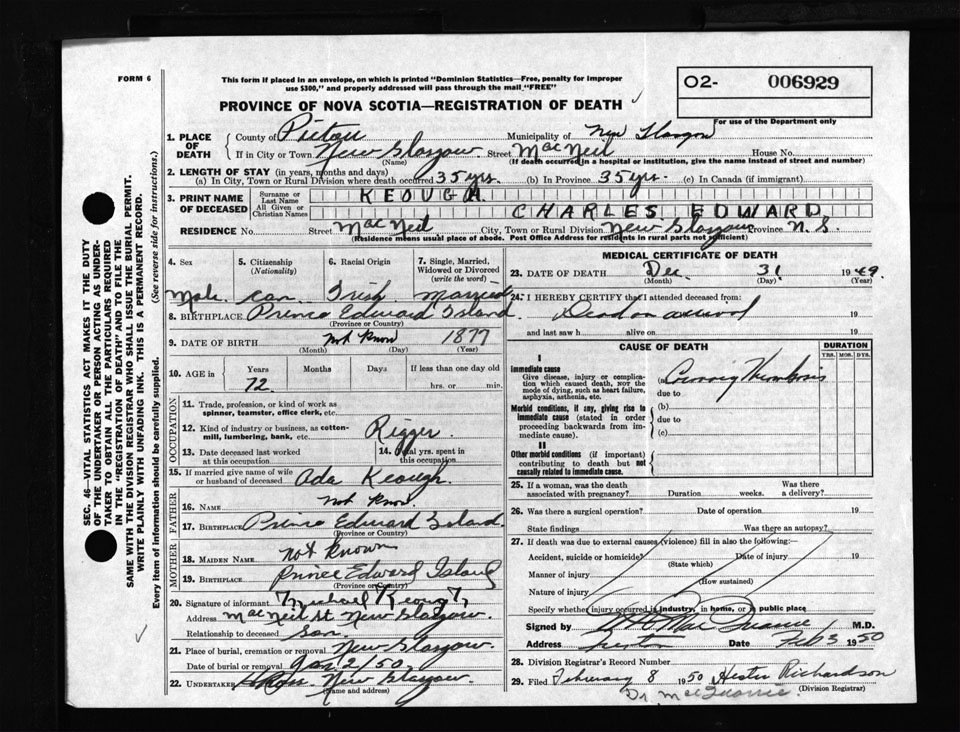 FORM 6
This form if placed in an envelope, on which is printed "Dominion Statistics—Free, penalty for improper
use $300," and properly addressed will pass through the mail "FREE"
PROVINCE OF NOVA SCOTIA—REGISTRATION OF DEATH
O2- 006929
For use of the Department only
1. PLACE OF DEATH
County of Pictou Municipality of New Glasgow
If in City or Town New Glasgow Street MacNeil House No.
(Name) (If death occurred in a hospital or institution, give the name instead of street and number)
2. LENGTH OF STAY (in years, months and days)
(a) In City, Town or Rural Division where death occurred 35 yrs. (b) In Province 35 yrs. (c) In Canada (if immigrant)
3. PRINT NAME OF DECEASED
Surname or Last Name KEOUGH
All Given or Christian Names CHARLES EDWARD
RESIDENCE No. Street MacNeil City, Town or Rural Division New Glasgow Province N.S.
(Residence means usual place of abode. Post Office Address for residents in rural parts not sufficient)
4. Sex
5. Citizenship (Nationality)
6. Racial Origin
7. Single, Married, Widowed or Divorced (write the word)
Male. Can. Irish Married
8. BIRTHPLACE Prince Edward Island.
(Province or Country)
9. DATE OF BIRTH Not Know 1877
(Month) (Day) (Year)
10. AGE in Years Months Days If less than one day old
72 hrs. or min.
OCCUPATION
11. Trade, profession, or kind of work as
spinner, teamster, office clerk, etc.
12. Kind of industry or business, as cotton-
mill, lumbering, bank, etc. Rigger.
13. Date deceased last worked
at this occupation
14. Total yrs. spent in
this occupation
15. If married give name of wife
or husband of deceased Ada Keough.
FATHER
16. NAME Not Know.
17. BIRTHPLACE Prince Edward Island.
(Province or Country)
MOTHER
18. MAIDEN NAME Not Known
19. BIRTHPLACE Prince Edward Island
(Province or Country)
20. Signature of informant Michael Keough
Address MacNeil St New Glasgow.
Relationship to deceased Son.
21. Place of burial, cremation or removal New Glasgow.
Date of burial or removal Jan 2/50
22. UNDERTAKER New Glasgow.
(Name and address)
MEDICAL CERTIFICATE OF DEATH
23. DATE OF DEATH Dec. 31 1949.
(Month) (Day) (Year)
24. I HEREBY CERTIFY that I attended deceased from:
Dead on arrival 19
and last saw h alive on 19
CAUSE OF DEATH
DURATION
YRS. MOS. DYS.
I
Immediate cause
Give disease, injury or complica-
tion which caused death, not the
mode of dying, such as heart failure,
asphyxia, asthenia, etc.
(a) Coronary Thrombosis
due to
Morbid conditions, if any, giving rise to
immediate cause (stated in order
proceeding backwards from im-
mediate cause).
(b)
due to
(c)
II
Other morbid conditions (if important)
contributing to death but not
causally related to immediate cause.
25. If a woman, was the death
associated with pregnancy? Duration weeks. Was there
a delivery?
26. Was there a surgical operation? Date of operation 19
State findings Was there an autopsy?
27. If death was due to external causes (violence) fill in also the following:—
Accident, suicide or homicide? Date of injury 19
(State which)
Manner of injury
(How sustained)
Nature of injury
Specify whether injury occurred in industry, in home, or in public place
Signed by MacQuarrie M.D.
Address Date Feb 3 1950
28. Division Registrar's Record Number
29. Filed February 8 1950 Hester Richardson
(Division Registrar)
Dr MacQuarrie.
SEC. 46—VITAL STATISTICS ACT MAKES IT THE DUTY
OF THE UNDERTAKER OR PERSON ACTING AS UNDER-
TAKER TO OBTAIN ALL THE PARTICULARS REQUIRED
IN THE "REGISTRATION OF DEATH" AND TO FILE THE
SAME WITH THE DIVISION REGISTRAR WHO SHALL ISSUE THE BURIAL PERMIT.
WRITE PLAINLY WITH UNFADING INK. THIS IS A PERMANENT RECORD.
Every item of information should be carefully supplied. (See reverse side for instructions.)